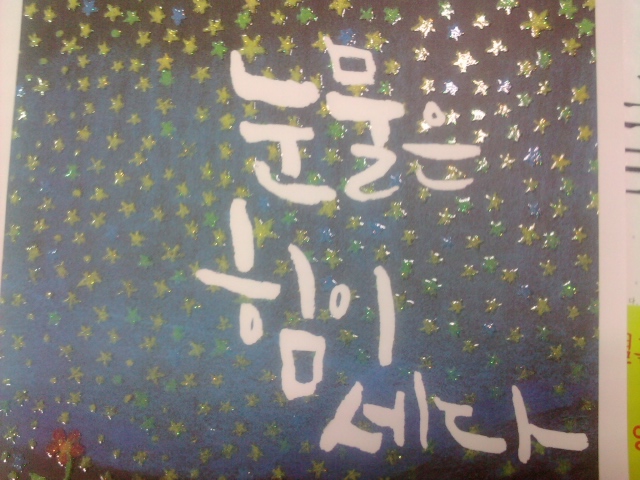 눈물은
힘이
세다